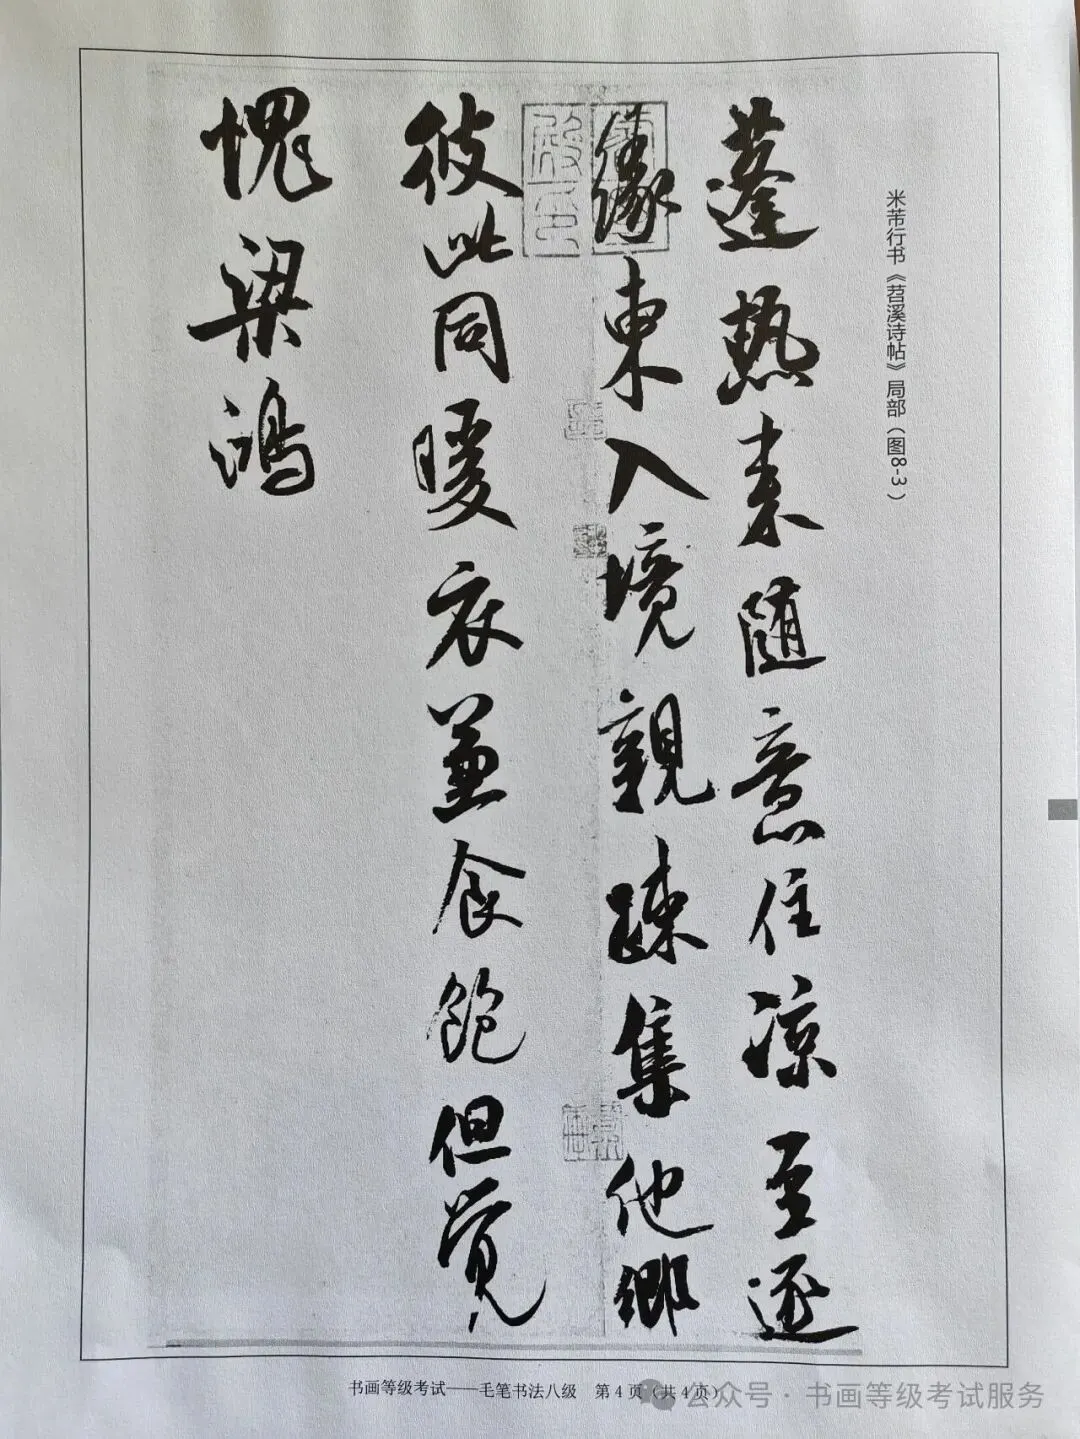 米芾行书《苕溪诗帖》局部（图8-3）
蓬热来随意住凉至逐
缘東入境親疎集他鄉
彼此同暖衣兼食飽但覺
愧梁鸿
书画等级考试——毛笔书法八级 第4页（共4页）
公众号·书画等级考试服务